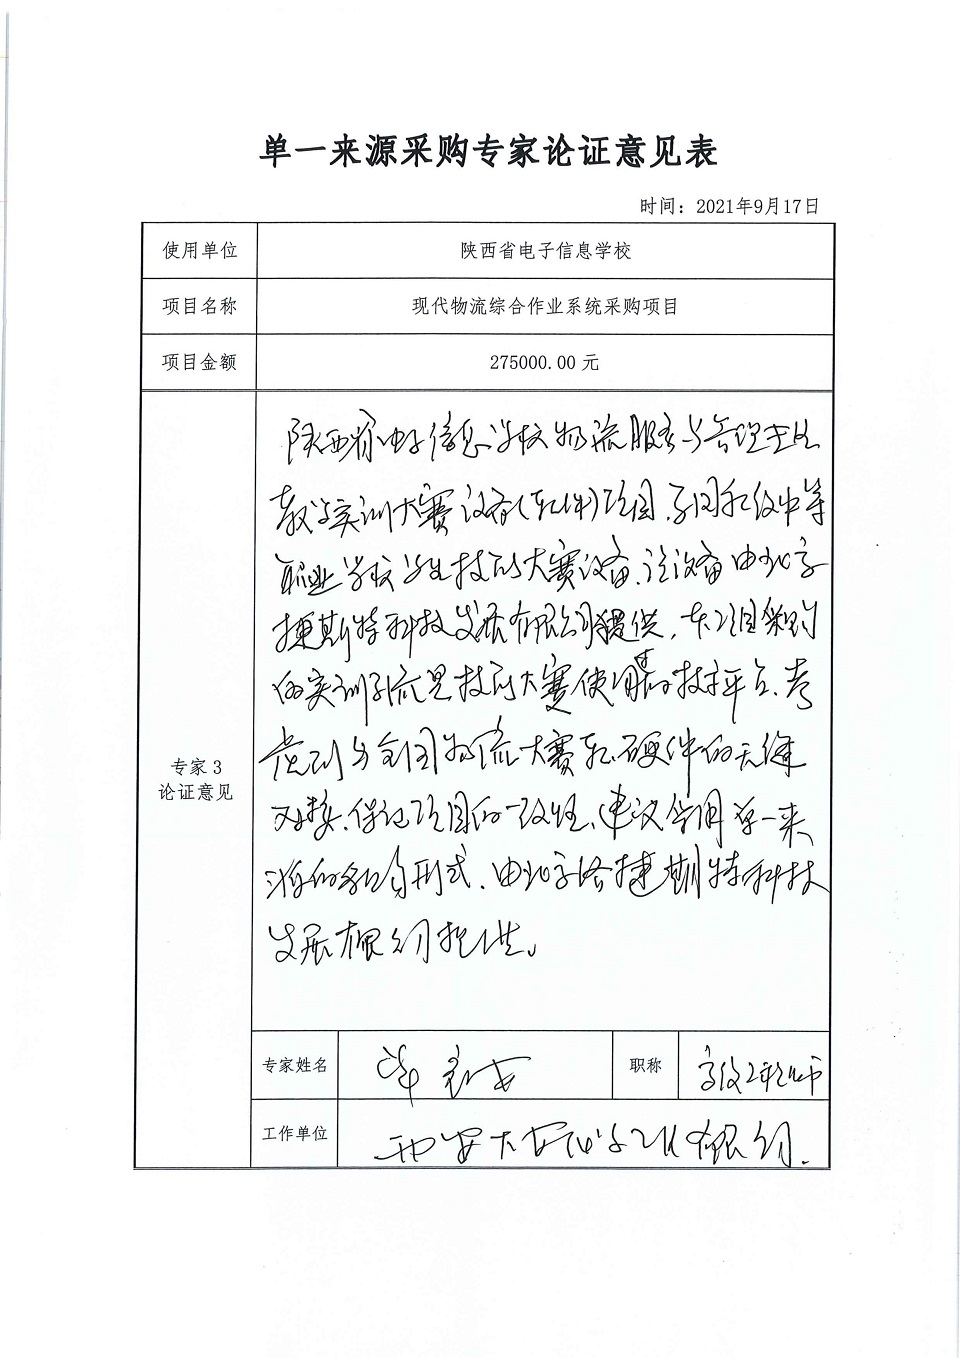 单一来源采购专家论证意见表
时间：2021年9月17日
使用单位 陕西省电子信息学校
项目名称 现代物流综合作业系统采购项目
项目金额 275000.00 元
专家 3
论证意见
陕西省电子信息学校物流服务与管理专业
教学实训大赛设备(软件)项目,中等
职业学校学生技能大赛设备,该设备由北京
捷斯特科技发展有限公司提供,本项目采购
的实训系统是技能大赛使用的技术平台,考
虑到与全国物流大赛软、硬件的无缝
对接,保证项目的一致性,建议采用单一来
源的形式,由北京络捷斯特科技
发展有限公司提供。
专家姓名
职称 高级工程师
工作单位 西安大有限公司